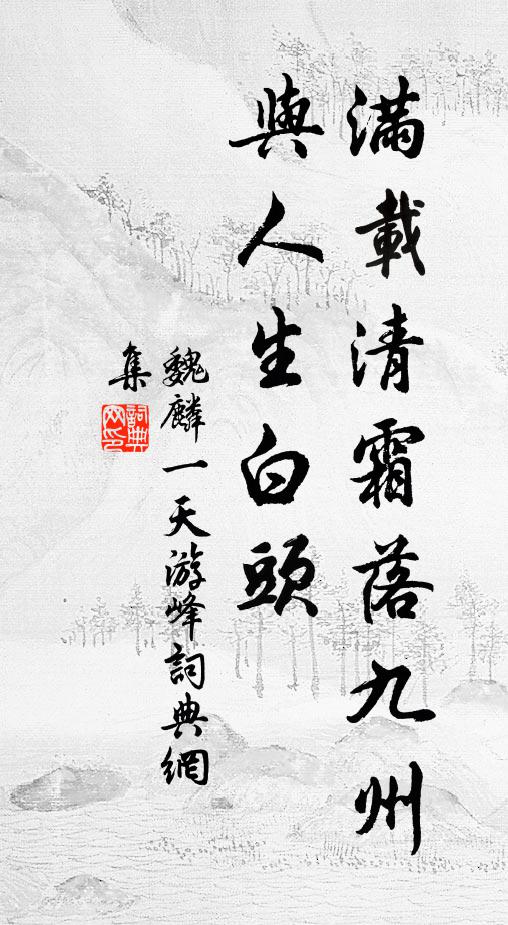 滿載清霜落九州
與人生白頭
魏麟一天游峰詞典網
集
詞典
网印